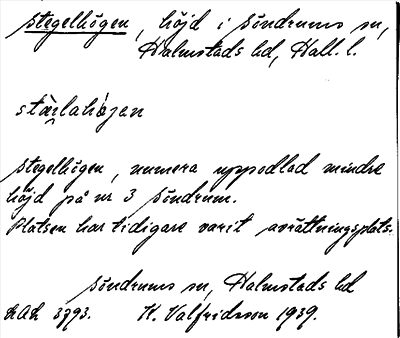 Stegelhögen, höjd i Söndrums sn,
Halmstads hd, Hall. l.
stä̀rlahö́gen
Stegelhögen, numera uppodlad mindre
höjd på nr 3 Söndrum.
Platsen har tidigare varit avrättningsplats.
Söndrums sn, Halmstads hd
LAL 3793. K. Valfridsson 1939.